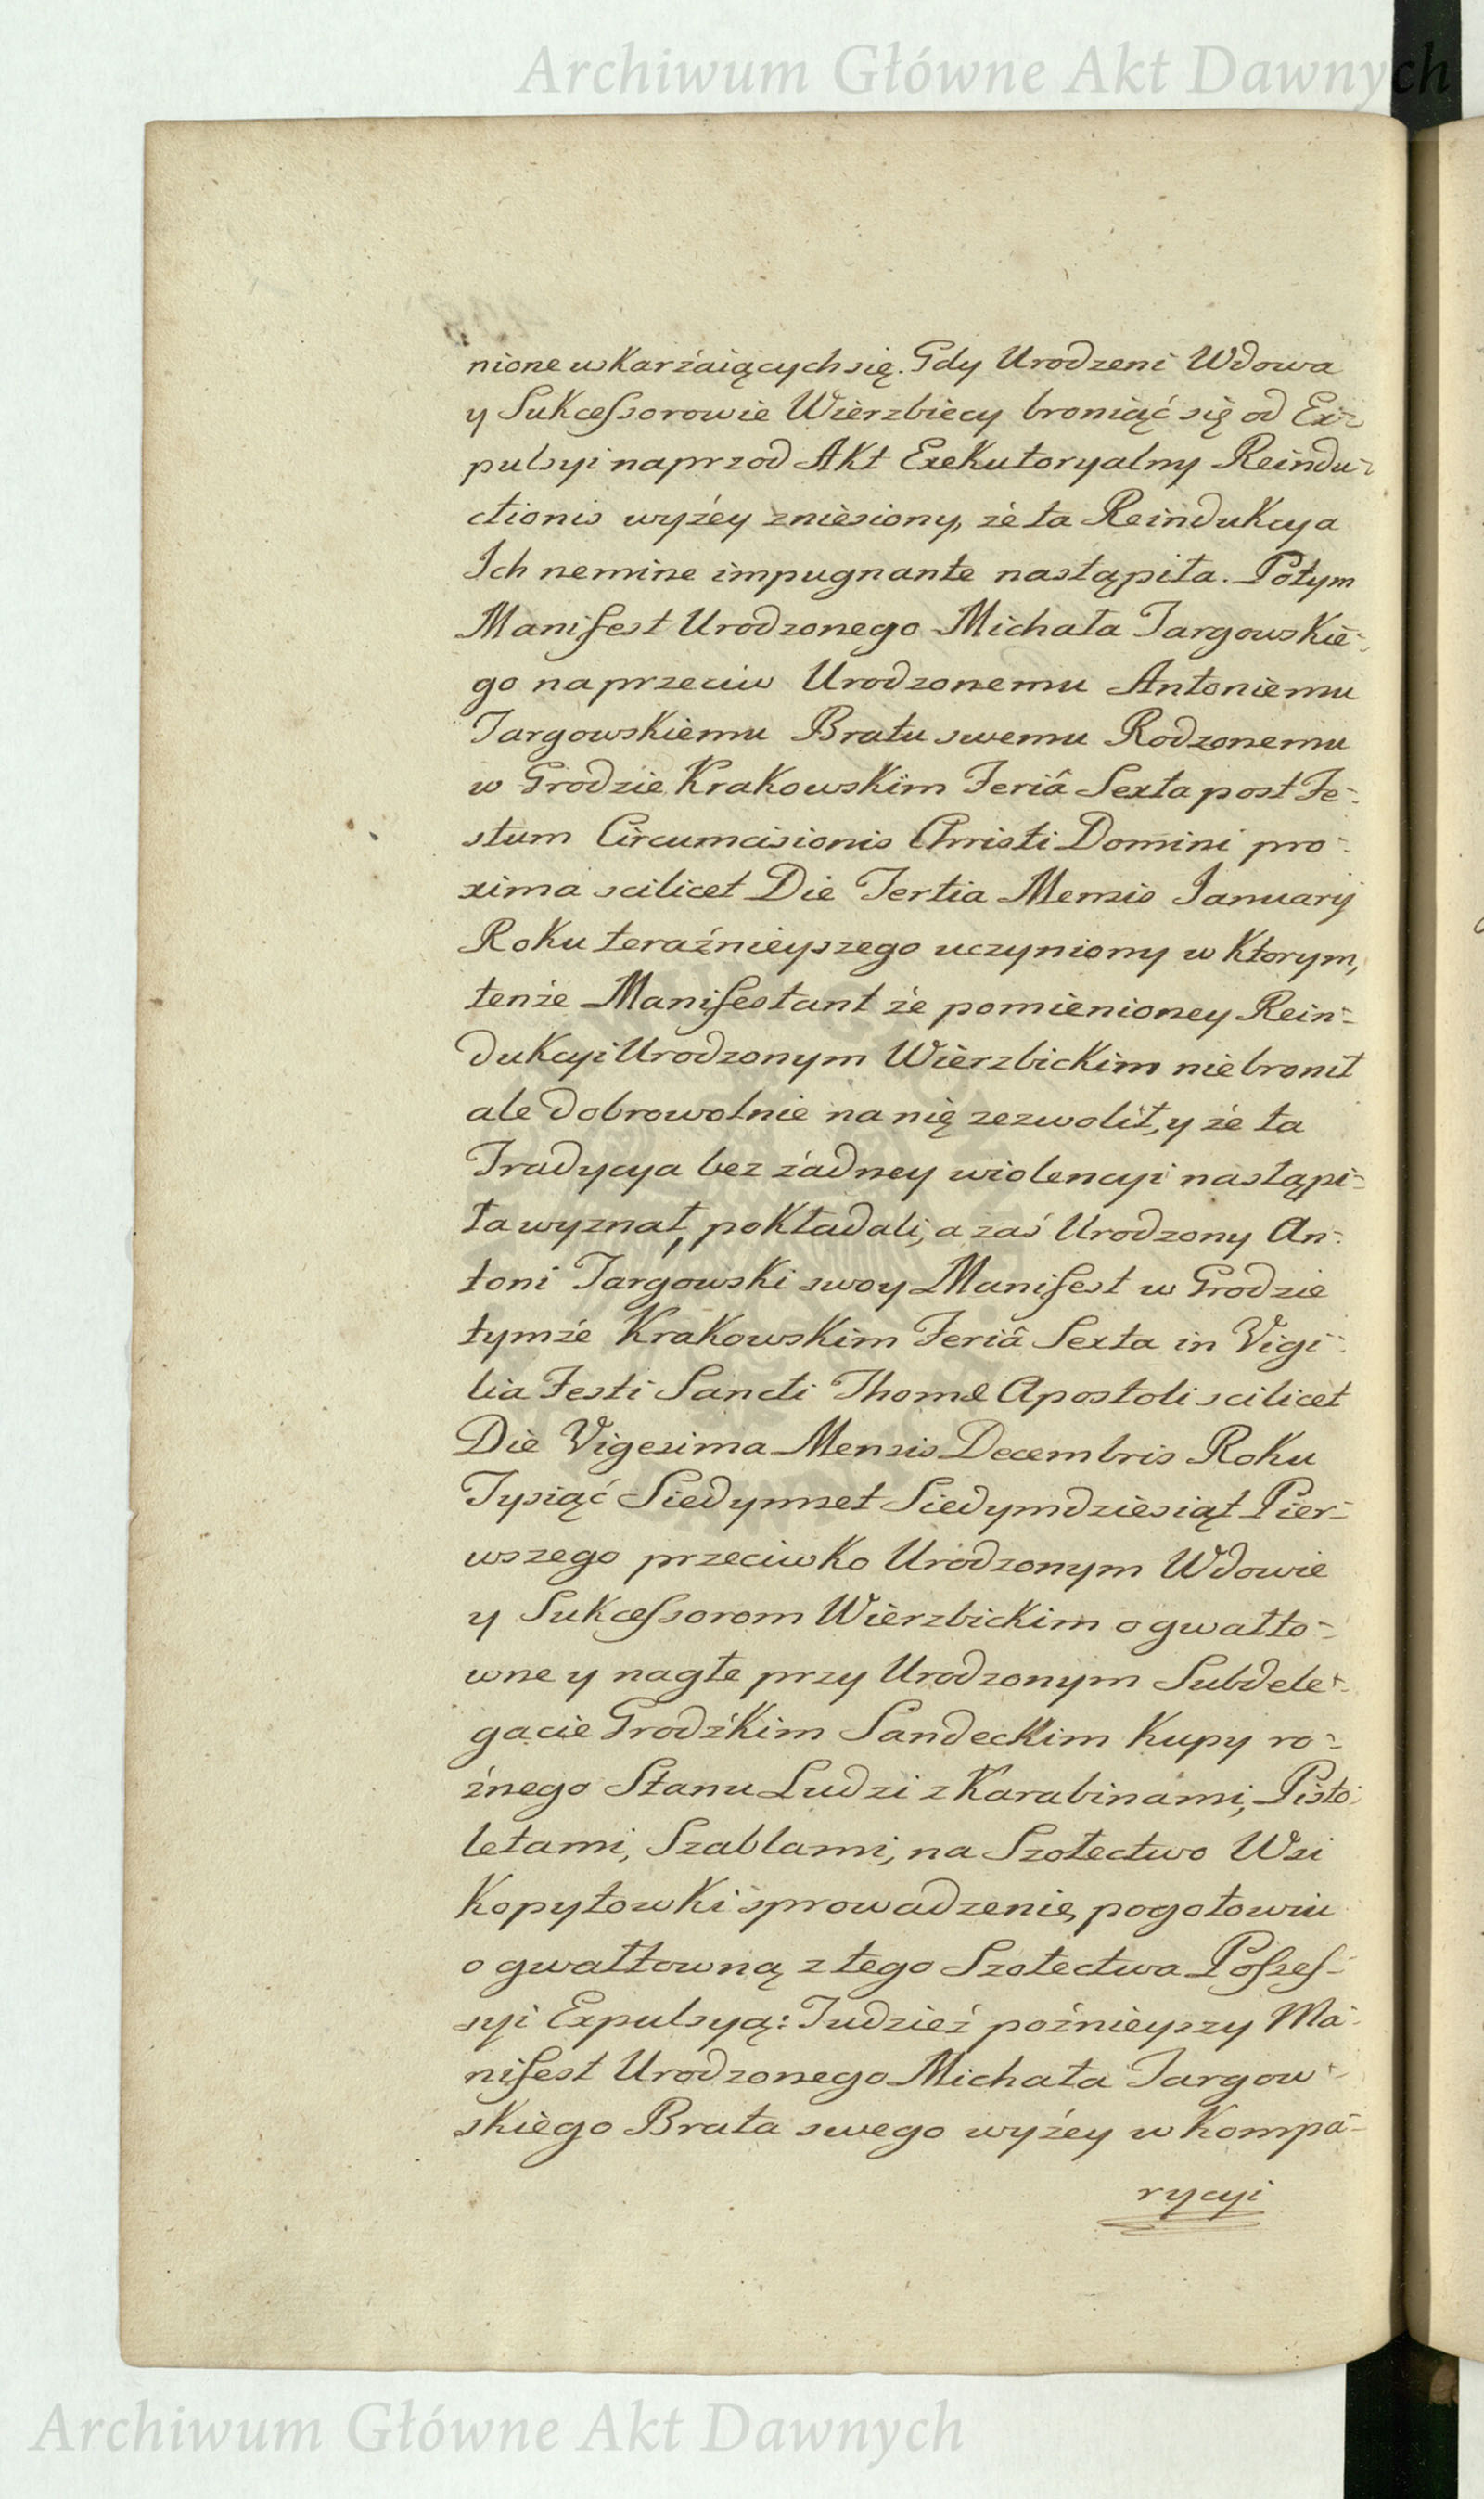 Archiwum Główne Akt Dawnych
nione uskarżaiących się. Gdy Urodzeni Wdowa
y Sukcessorowie Wierzbiecy broniąć się od Ex-
pulsyi naprzod Akt Exekutoryalny Reindu-
ctionis wyżey zniesiony, że ta Reindukcya
Ich nemine impugnante nastąpiła. Potym
Manifest Urodzonego Michała Targowskie-
go naprzeciw Urodzonemu Antoniemu
Targowskiemu Bratu swemu Rodzonemu
w Grodzie Krakowskim Feriâ Sexta post Fe-
stum Circumcisionis Christi Domini pro-
xima scilicet Die Tertia Mensis Januarij
Roku teraźnieyszego uczyniony w ktorym,
tenże Manifestant że pomienioney Rein-
dukcyi Urodzonym Wierzbickim nie bronił
ale dobrowolnie na nię zezwolił, y że ta
Tradycya bez żadney wiolencyi nastąpi-
ła wyznał, pokładali, a zaś Urodzony An-
toni Targowski swoy Manifest w Grodzie
tymże Krakowskim Feriâ Sexta in Vigi-
lia Festi Sancti Thomæ Apostoli scilicet
Die Vigesima Mensis Decembris Roku
Tysiąć Siedymset Siedymdziesiąt Pier-
wszego przeciwko Urodzonym Wdowie
y Sukcessorom Wierzbickim o gwałto-
wne y nagłe przy Urodzonym Subdele-
gacie Grodzkim Sandeckim kupy ro-
żnego Stanu Ludzi z Karabinami, Pisto-
letami, Szablami, na Szołectwo Wsi
Kopytowki sprowadzenie, pogotowiu
o gwałtowną z tego Szołectwa Posses-
syi Expulsyą: Tudzież poźnieyszy Ma-
nifest Urodzonego Michała Targow-
skiego Brata swego wyżey w Kompa-
rycyi
Archiwum Główne Akt Dawnych